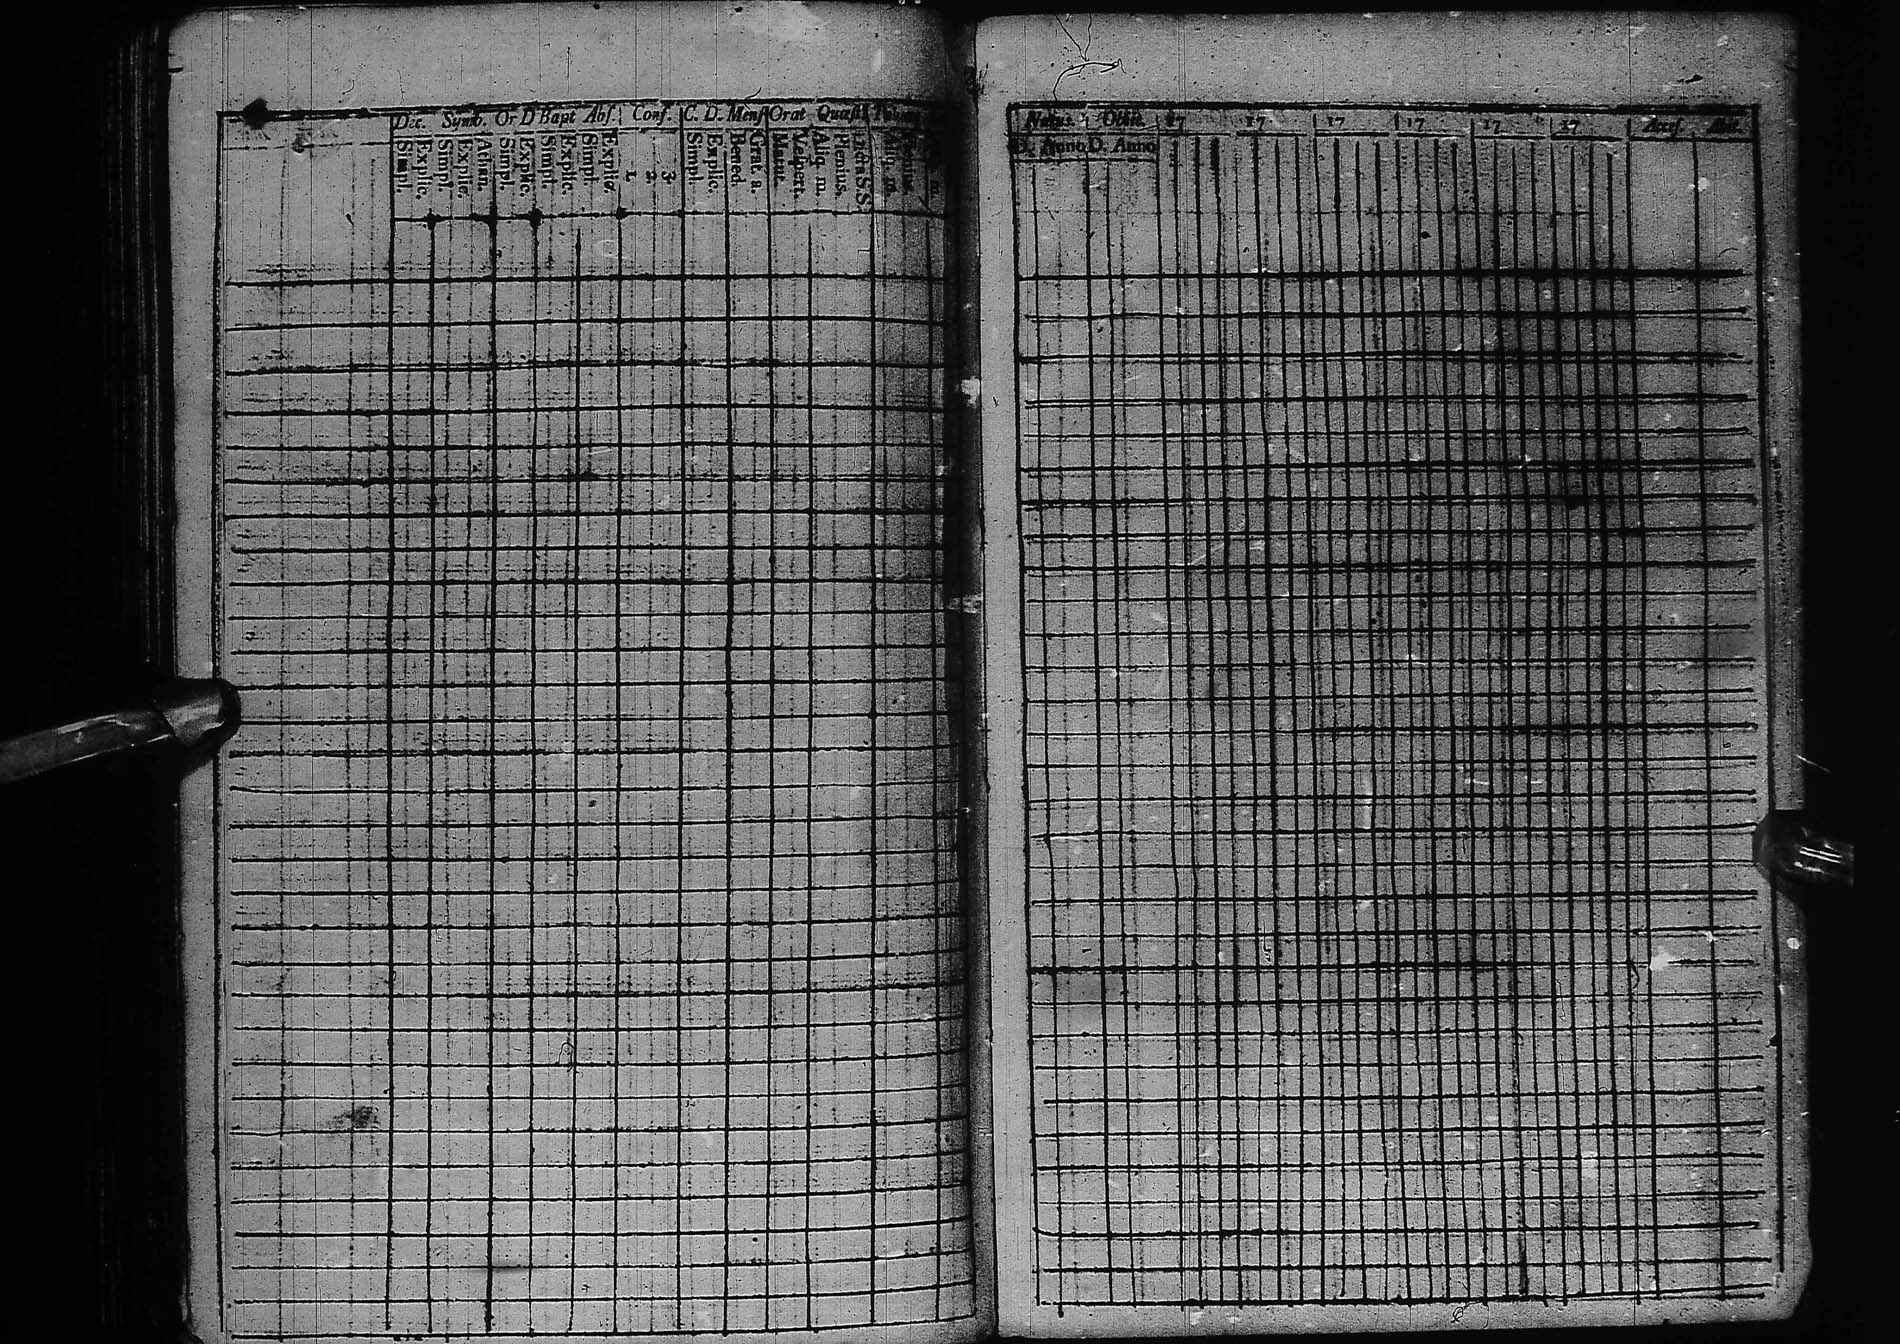 Dec. Symb. Or D Bapt Abs. Conf. C. D. Mens Orat Quæst
Simpl. Explic. Simpl. Explic. Athan. Simpl. Explic. Simpl. Explic. Simpl. Explic. 1. 2. 3. Simpl. Explic. Bened. Grat. a. Matut. Vespert. Aliq. m. Plenius.
Natus. Obiit. 17 17 17 17 17 17 Accес. Abit.
D. Anno D. Anno